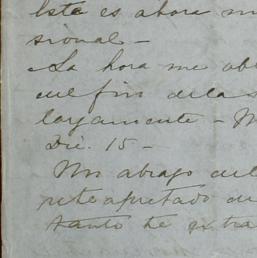 Este es ahora m
sional-
La hora me ob
cul fin de las
largamente - M
Dic. 15 -
Un abrazo
apretado de
tanto te extra